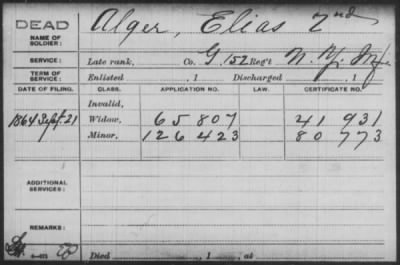 DEAD Alger, Elias 2nd
NAME OF SOLDIER:
SERVICE: Late rank, Co. G, 152 Reg't N. Y. Inf.
TERM OF SERVICE: Enlisted , 1 Discharged , 1
DATE OF FILING. CLASS. APPLICATION NO. LAW. CERTIFICATE NO.
Invalid,
1864 Sept. 21 Widow, 65 807 41 931
Minor, 126 423 80 773
ADDITIONAL SERVICES:
REMARKS:
Died , 1 , at